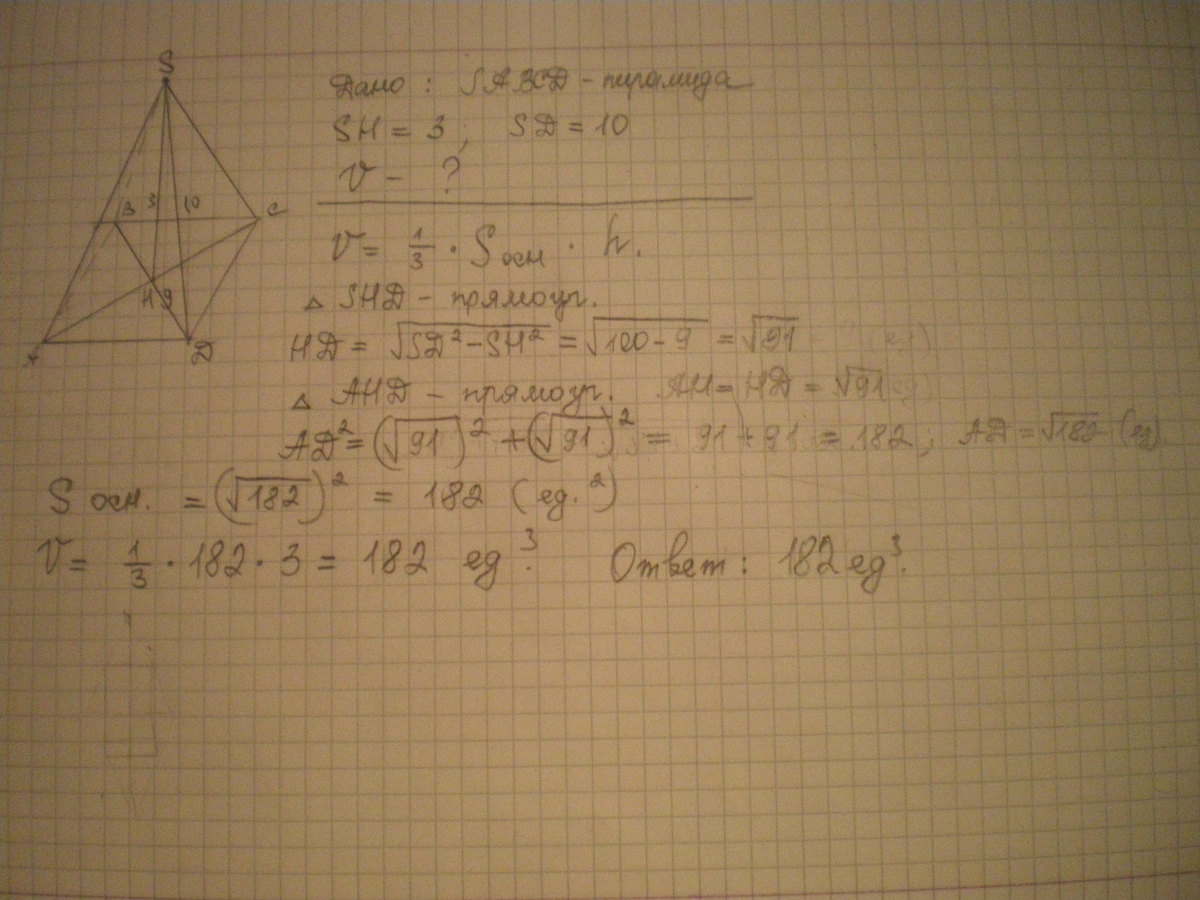 S
Дано : SABCD - пирамида
SH = 3 ; SD = 10
V - ?
B 3 10 C
V = 1/3 · S осн · h.
△ SHD - прямоуг.
H 9
A D
HD = √(SD² - SH²) = √(100 - 9) = √91
△ AHD - прямоуг. AH = HD = √91
AD² = (√91)² + (√91)² = 91 + 91 = 182 ; AD = √182 (ед)
S осн. = (√182)² = 182 (ед.²)
V = 1/3 · 182 · 3 = 182 ед³. Ответ : 182 ед³.